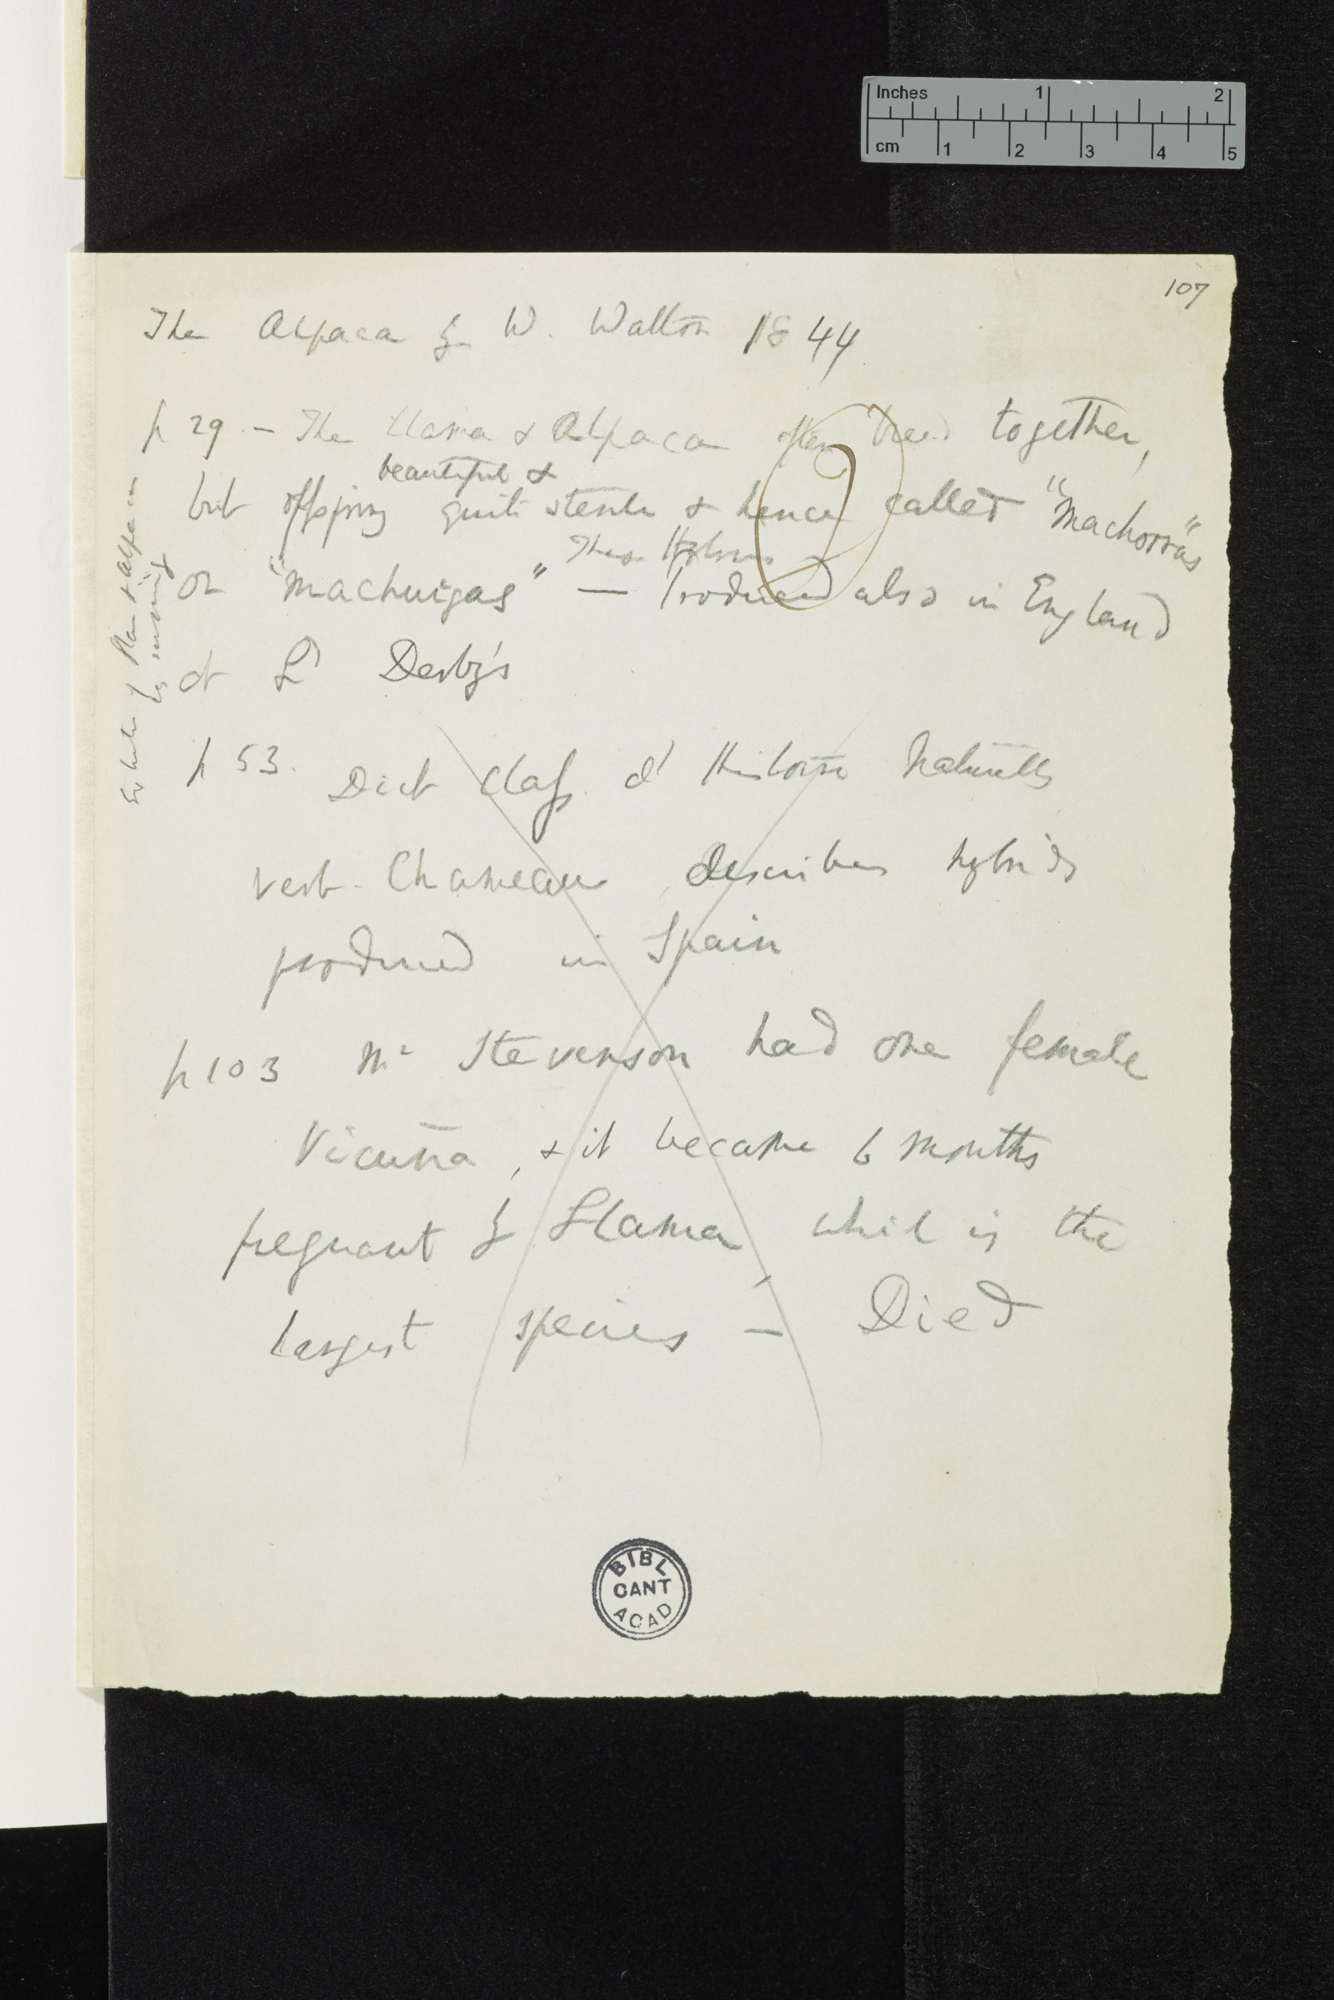 Inches 1 2
cm 1 2 3 4 5
107
The Alpaca by W. Walton 1844
p 29 – The Llama & Alpaca often breed together,
beautiful &
but offspring quite sterile & hence called "Machorras"
These Hybrids
or "machuigas" — Produced also in England
at Ld Derby's
9
of Llama & Alpaca
is missing
p 53. Dict Class. d' Histoire Naturelle
vert. Chameau describes hybrids
produced in Spain
p 103 Mr Stevenson had one female
Vicuña, & it became 6 months
pregnant by Llama which is the
largest species — Died
BIBL
CANT
ACAD